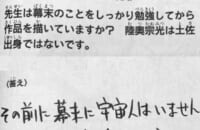 先生は幕末のことをしっかり勉強してから
作品を描いていますか? 陸奥宗光は土佐
出身ではないです。
(答え)
その前に幕末に宇宙人はいません